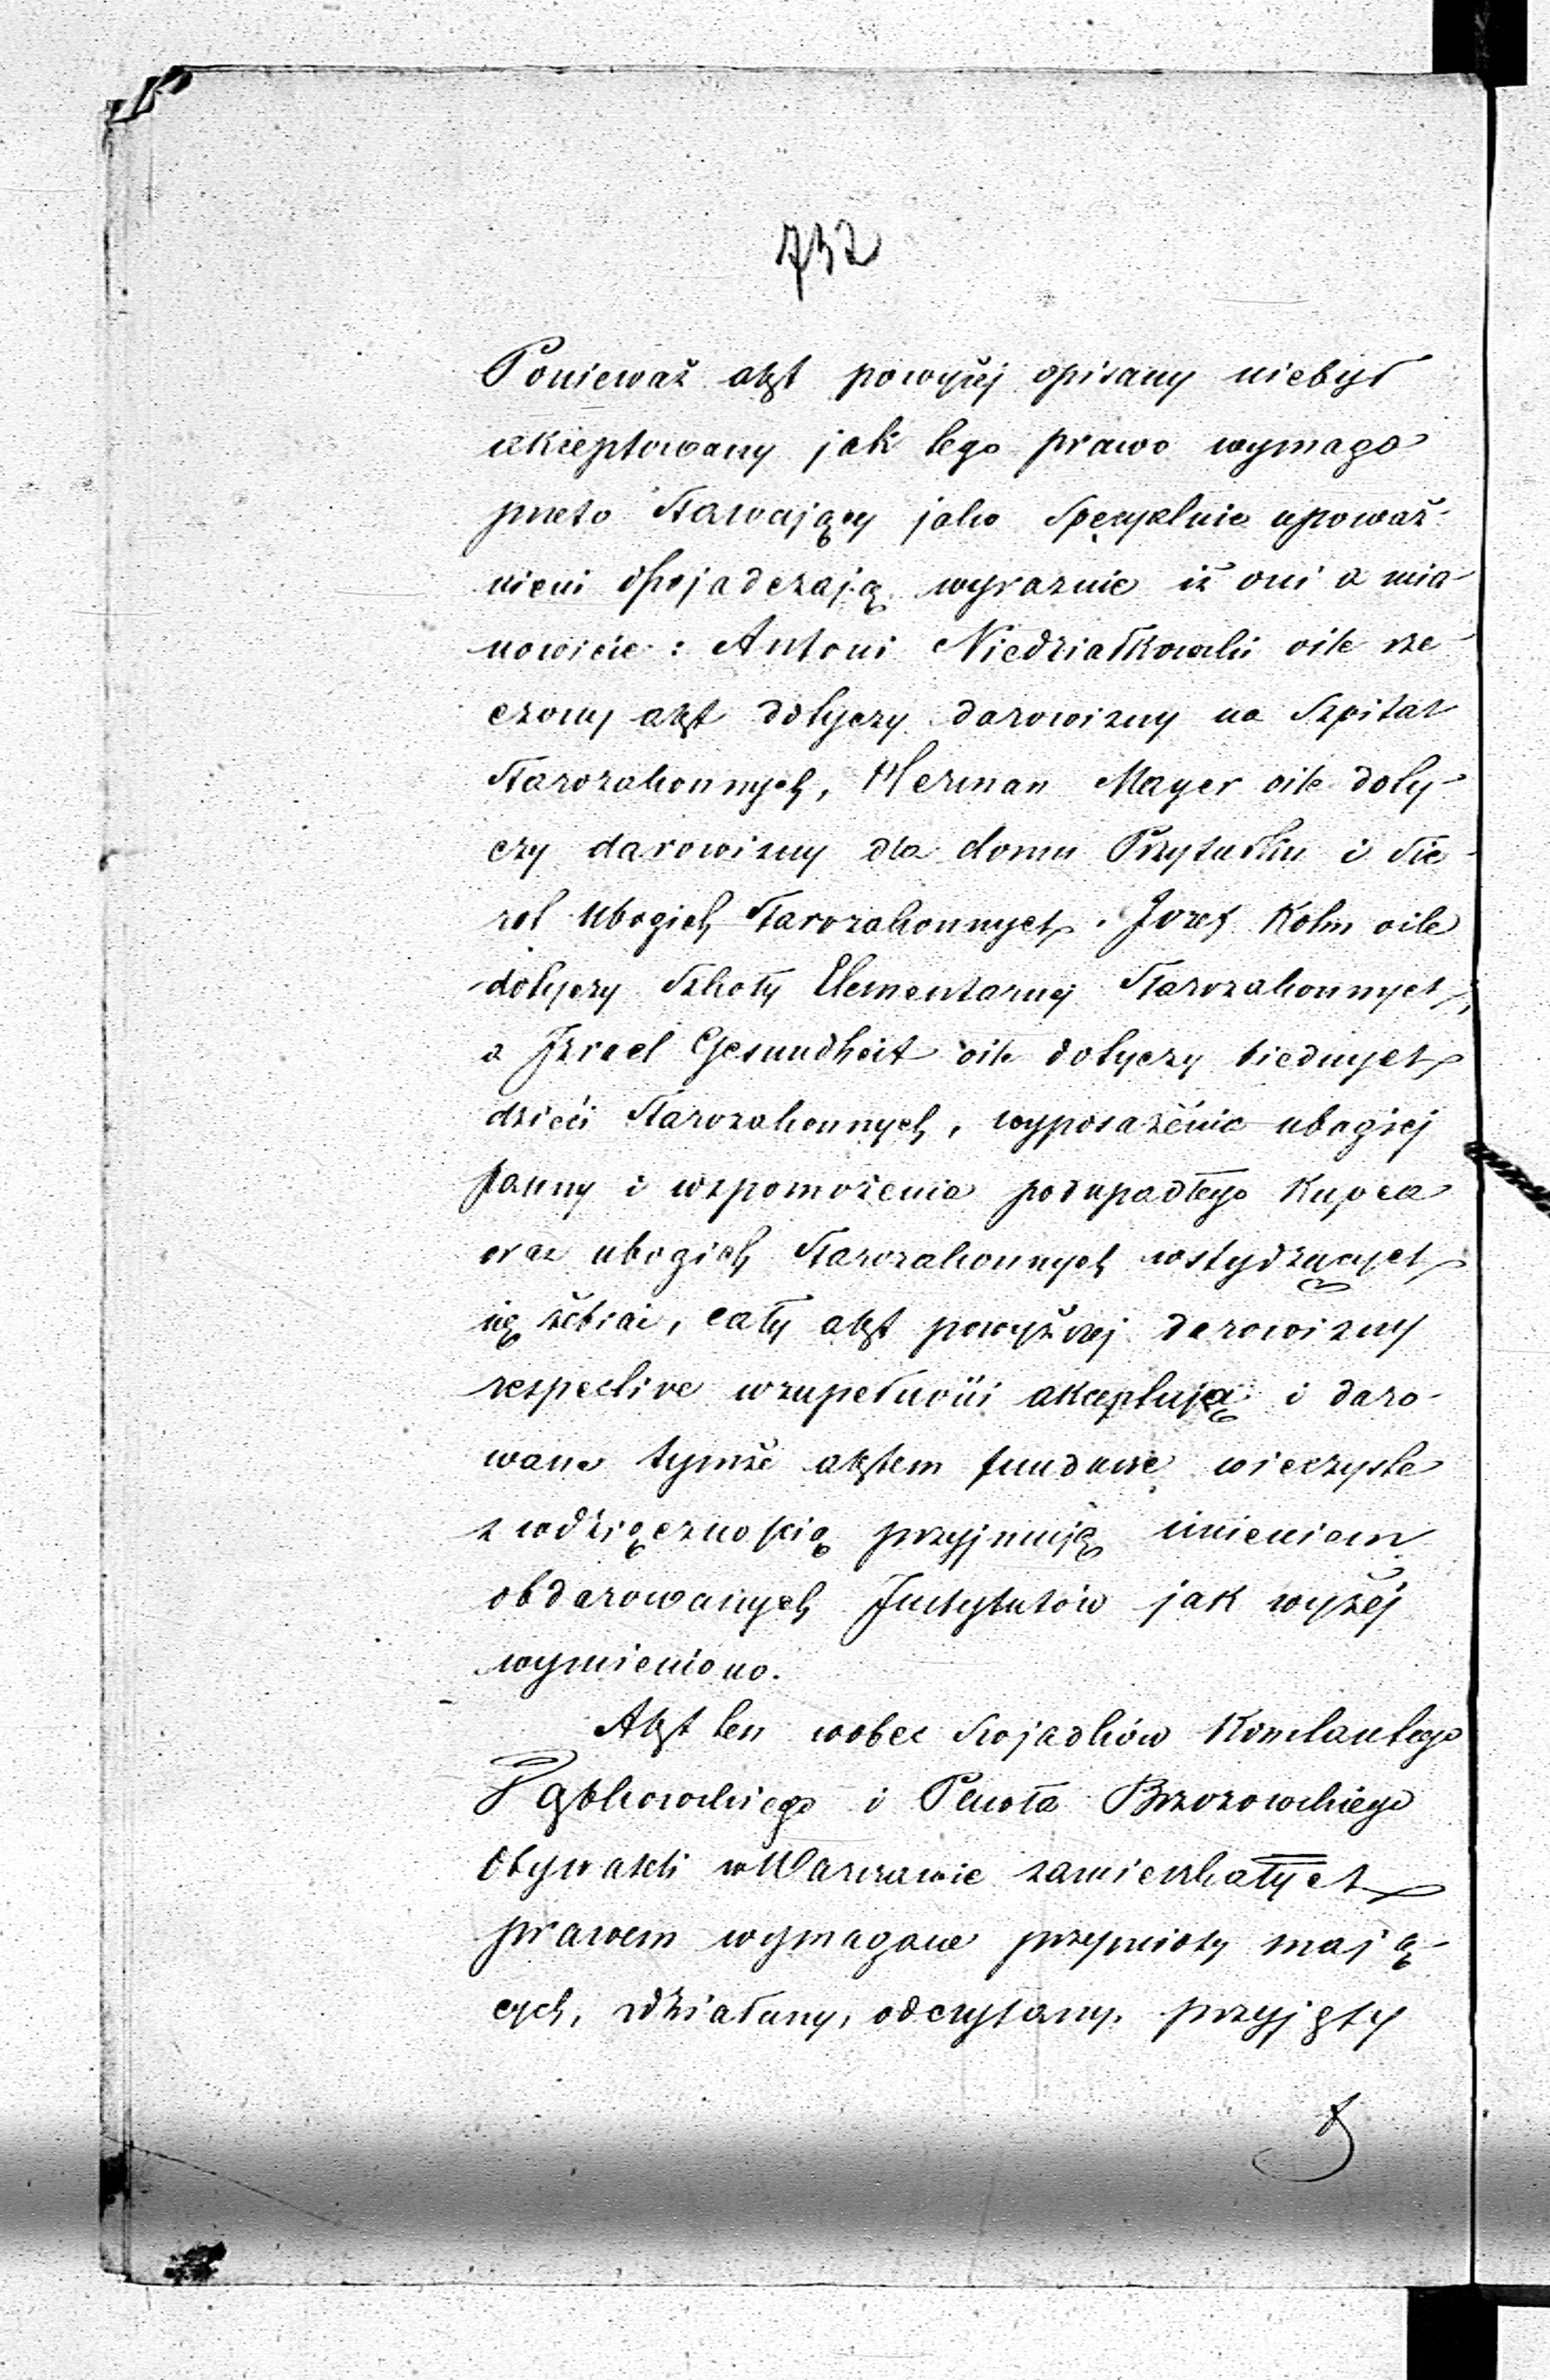 732
Ponieważ akt powyżej opisany niebył
akceptowany jak tego prawo wymaga
przeto Stawający jako Specyalnie upoważ-
nieni oświadczają wyraznie iż oni a mia-
nowicie: Antoni Niedziałkowski oile rze-
czony akt dotyczy darowizny na Szpital
Starozakonnych, Herman Mayer oile doty-
czy darowizny dla domu Przytułku i Sie-
rot Ubogich Starozakonnych. Jozef Kohn oile
dotyczy Szkoły Elementarnej Starozakonnych,
a Izrael Gesundheit oile dotyczy biednych
dzieci Starozakonnych, wyposażenie ubogiej
panny i wspomożenia podupadłego Kupca
oraz ubogich Starozakonnych wstydzących
się żebrać, cały akt powyższej darowizny
respective wzupełności akceptują i daro-
wane tymże aktem fundusze wieczyste
z wdzięcznością przyjmują imieniem
obdarowanych Instytutów jak wyżej
wymieniono.
Akt ten wobec Swiadków Konstantego
i Brzozowskiego
Obywateli w Warszawie zamieszkałych
prawem wymagane przymioty mają-
cych, zdziałany, odczytany, przyjęty